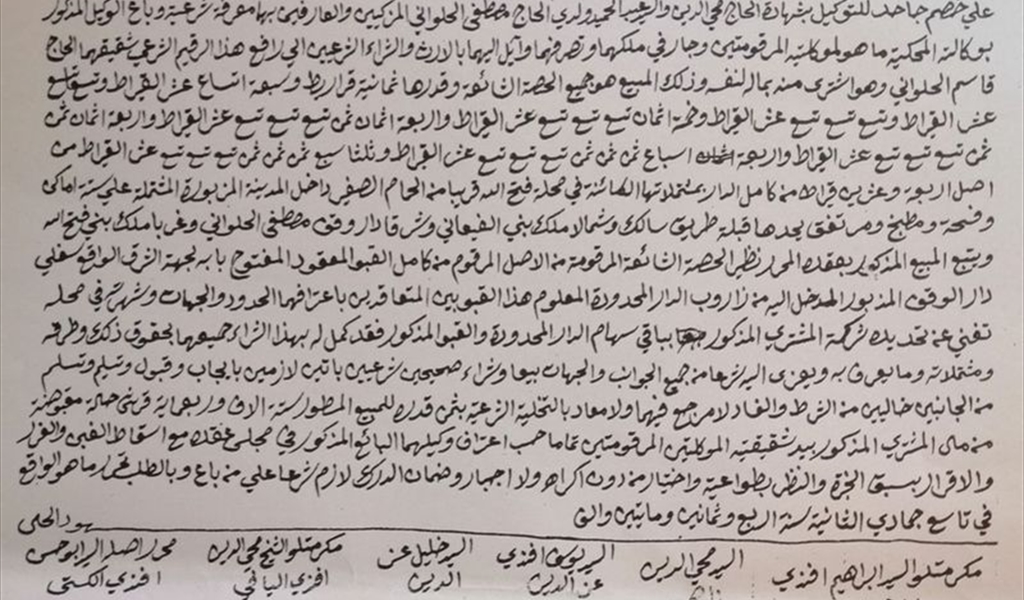 على خصم جاحد للتوكيل بشهادة الحاج محي الدين والسيد عبد الحميد ولدي الحاج مصطفى الحلواني المزكيين والعارفين بها معرفة شرعية وباع الوكيل المذكور
بوكالته المحكية ما هو لموكلتيه المرقومتين وجار في ملكهما وتصرفهما وآيل اليهما بالارث والشراء الشرعيين الى رافع هذا الرقيم الشرعي شقيقهما الحاج
قاسم الحلواني وهو اشترى منه بماله لنفسه وذلك المبيع هو جميع الحصة الشائعة وقدرها ثمانية قراريط وسبعة اتساع عشر القيراط وتسع تسع
عشر القيراط وتسع تسع تسع عشر القيراط وخمسة اثمان تسع تسع تسع عشر القيراط واربعة اثمان ثمن تسع تسع تسع عشر القيراط واربعة اثمان ثمن
ثمن تسع تسع تسع عشر القيراط واربعة اسباع ثمن ثمن ثمن تسع تسع تسع عشر القيراط وثلثا سبع ثمن ثمن ثمن تسع تسع تسع عشر القيراط من
اصل اربعة وعشرين قيراطا من كامل الدار بمشتملاتها الكائنة في محلة فتح الله قريبا من الحمام الصغير داخل المدينة المزبورة المشتملة على ستة اماكن
وفسحة ومطبخ ومرتفق يحدها قبلة طريق سالك وشمالا ملك بني القيعاني وشرقا دار وقف مصطفى الحلواني وغربا ملك بني فتح الله
ويتبع المبيع المذكور بعقده المحرر نظير الحصة الشائعة المرقومة من الاصل المرقوم من كامل القبو المعقود المفتوح بابه لجهة الشرق الواقع سفلي
دار الوقف المزبور المدخل اليه من زاروب الدار المحدودة المعلوم هذا القبو بين المتعاقدين باعترافهما الحدود والجهات وشهرته في محله
تغني عن تحديده لشركة المشتري المذكور بباقي سهام الدار المحدودة والقبو المذكور فقد كمل له بهذا الشراء جميعهما بحقوق ذلك وطرقه
ومشتملاته وما يعرف به ويعزى اليه شرعا من جميع الجوانب والجهات بيعا وشراء صحيحين شرعيين باتين لازمين بايجاب وقبول وتسليم وتسلم
من الجانبين خاليين من الشرط والفساد لا مرجع فيهما ولا معاد بالتخلية الشرعية بثمن قدره للمبيع المسطور ستة الاف واربعماية قرش حالة مقبوضة
من مال المشتري المذكور بيد شقيقتيه الموكلتين المرقومتين تماما حسب اعتراف وكيلهما البائع المذكور في مجلس عقده مع اسقاط الغبن والغرر
والاقرار بسبق الخبرة والنظر بطواعية واختيار من دون اكراه ولا اجبار وضمان الدرك لازم شرعا على من باع وبالطلب تحرر ما هو الواقع
في تاسع جمادي الثانية سنة اربع وثمانين ومايتين والف
شهود الحال
مكرمتلو السيد ابراهيم افندي
السيد محي الدين
السيد يوسف افندي عز الدين
السيد خليل عز الدين
مكرمتلو الشيخ محي الدين افندي اليافي
محرر اصله السيد ابو حسن افندي الكستي